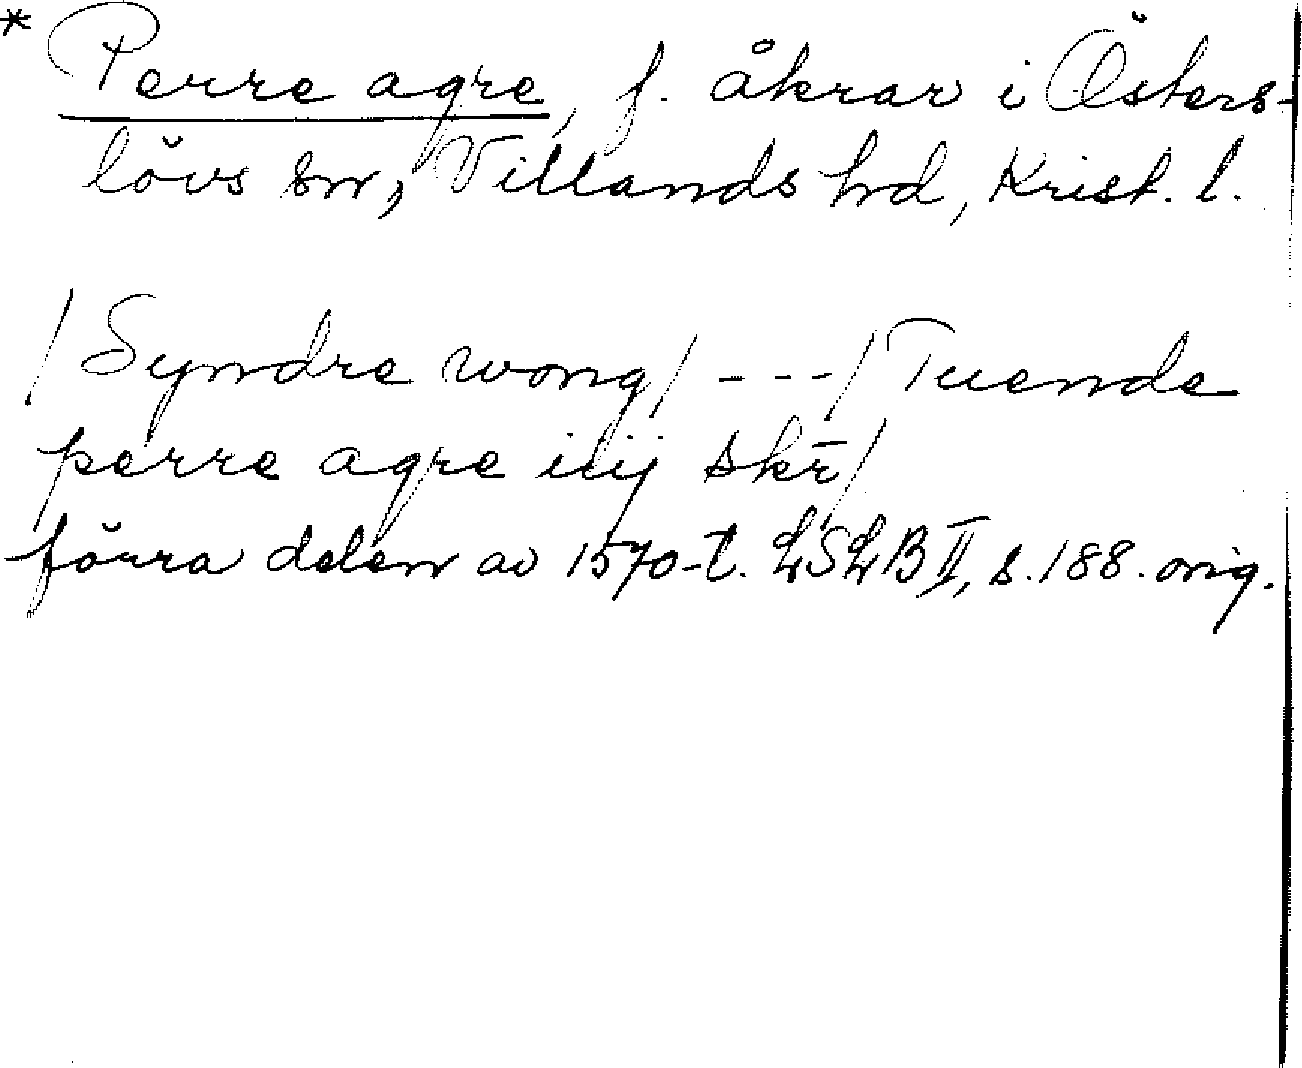 * Perre agre, f. åkrar i Östers-
lövs sn, Villands hd, Krist. l.
/Syndre wong/ - - - /Tuende
perre agre iiij skr̄/
förra delen av 1570-t. LSLB II, s. 188. orig.